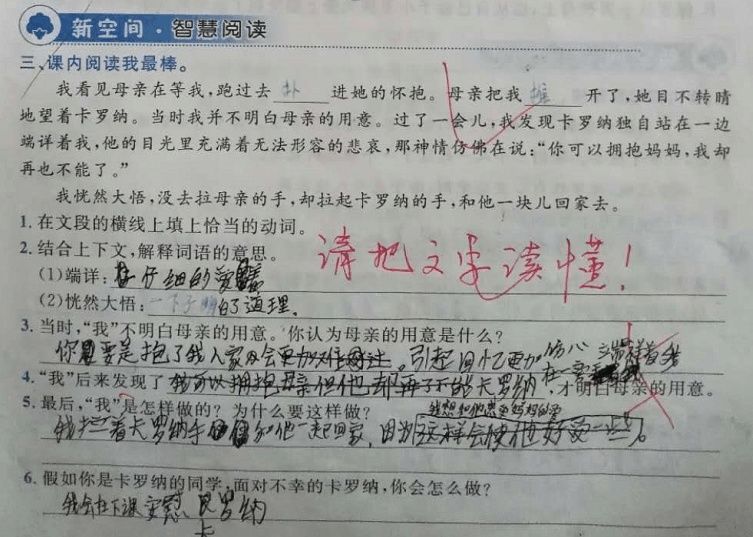 新空间·智慧阅读
三、课内阅读我最棒。
我看见母亲在等我,跑过去 扑 进她的怀抱。母亲把我 推 开了,她目不转睛
地望着卡罗纳。当时我并不明白母亲的用意。过了一会儿,我发现卡罗纳独自站在一边
端详着我,他的目光里充满着无法形容的悲哀,那神情仿佛在说:“你可以拥抱妈妈,我却
再也不能了。”
我恍然大悟,没去拉母亲的手,却拉起卡罗纳的手,和他一块儿回家去。
1. 在文段的横线上填上恰当的动词。
2. 结合上下文,解释词语的意思。
请把文字读懂!
(1)端详:仔细的
(2)恍然大悟:一下子明白了道理.
3. 当时,“我”不明白母亲的用意。你认为母亲的用意是什么?
你要是抱了我人家会更加。引起回忆更加伤心
4. “我”后来发现了我可以拥抱母亲但他却再了不能卡罗纳在一旁端详着我,才明白母亲的用意。
5. 最后,“我”是怎样做的?为什么要这样做?
我想和他
我拦着卡罗纳手和他一起回家,因为这样会使他好受一些。
6. 假如你是卡罗纳的同学,面对不幸的卡罗纳,你会怎么做?
我会在下课安慰罗纳
卡